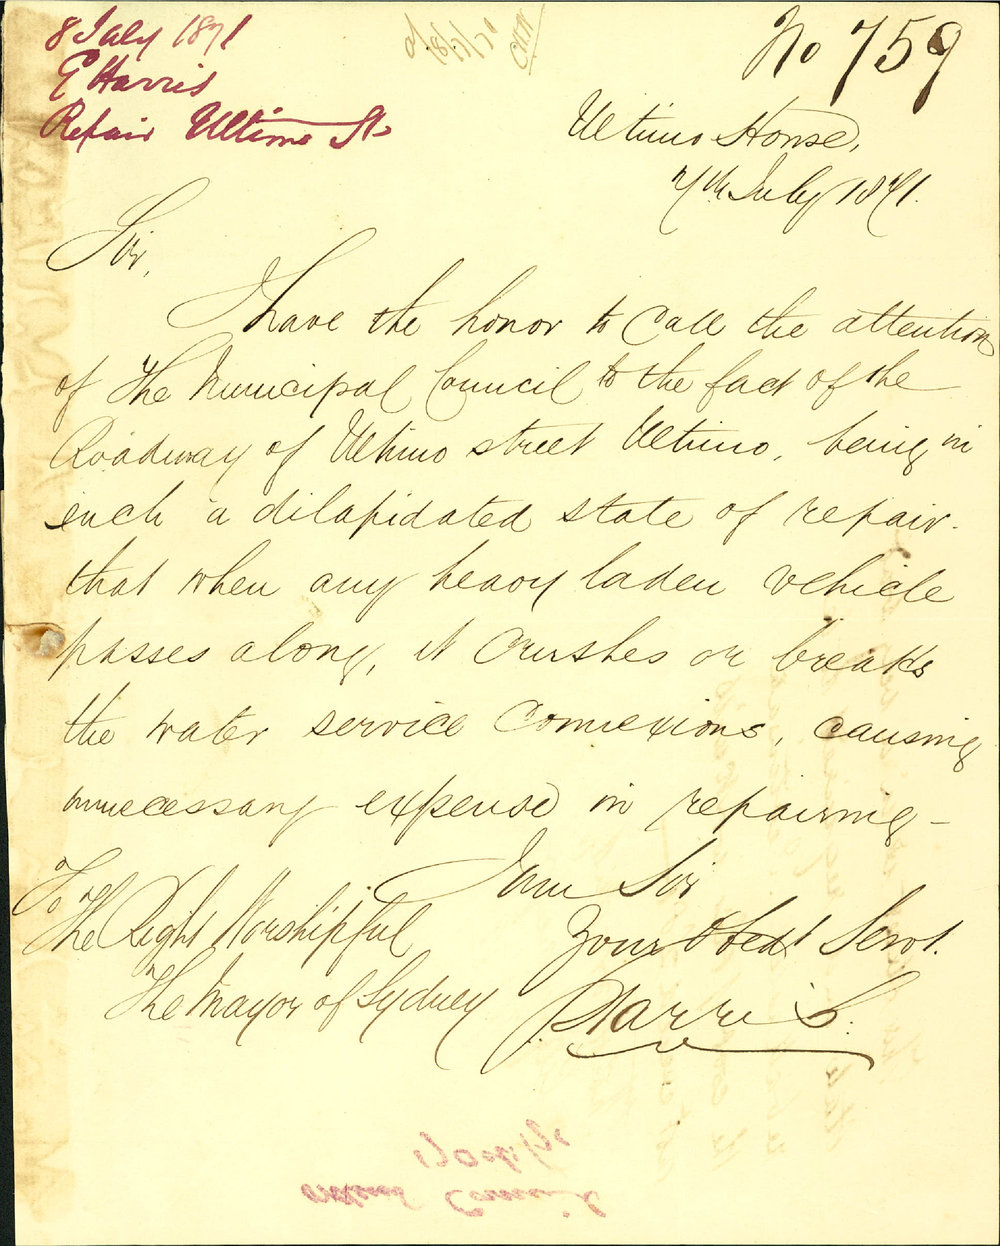 8 July 1871
E Harris
Repair Ultimo St
No 759
Ultimo House,
7th July 1871.
Sir,
I have the honor to call the attention
of The Municipal Council to the fact of the
Roadway of Ultimo street Ultimo, being in
such a dilapidated state of repair.
that when any heavy laden vehicle
passes along, it crushes or breaks
the water service connexions, causing
unnecessary expense in repairing –
I am Sir
Your Obedt Servt.
Harris.
To
The Right Worshipful
The Mayor of Sydney